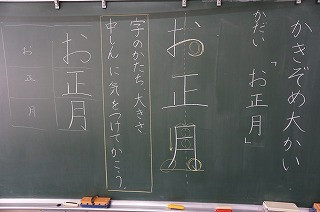 かきぞめ大かい
かだい
「お正月」
お正月
字のかたち、大きさ
中しんに気をつけてかこう。
お正月
お正月